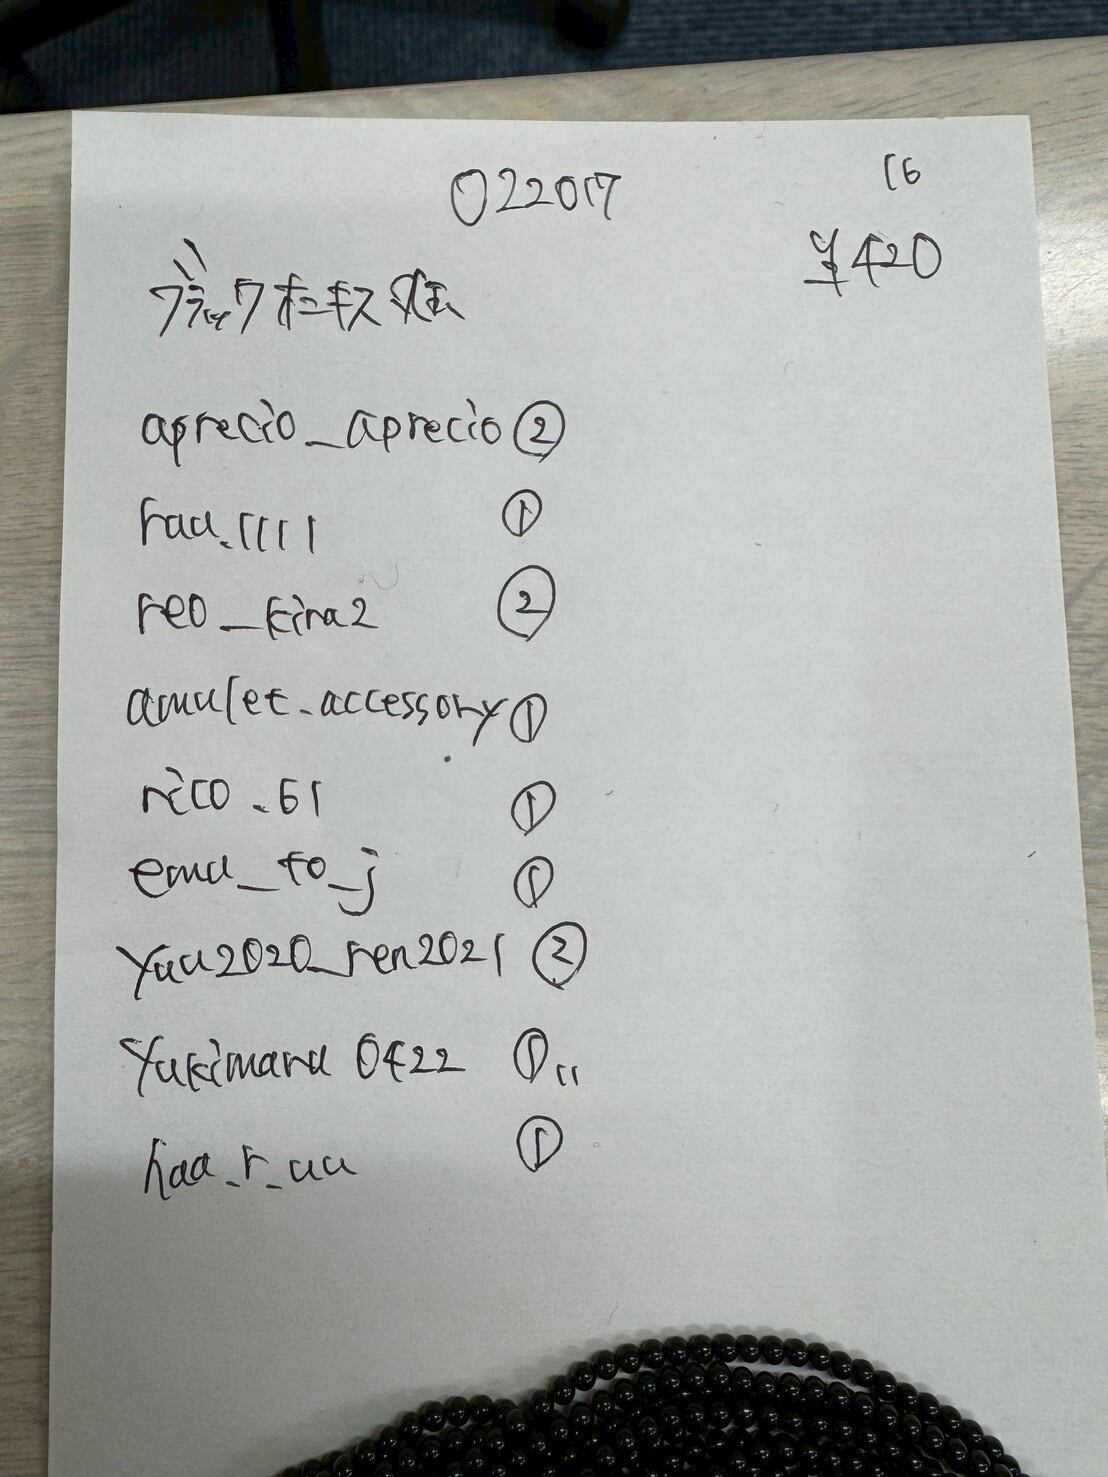 022017
16
¥420
ブラックオニキス
aprecio_aprecio ②
rau.1111 ①
reo_kira2 ②
amulet.accessory ①
rico.61 ①
emu_to_j ①
yuu2020_ren2021 ②
yukimaru 0422 ①
haa_r_uu ①